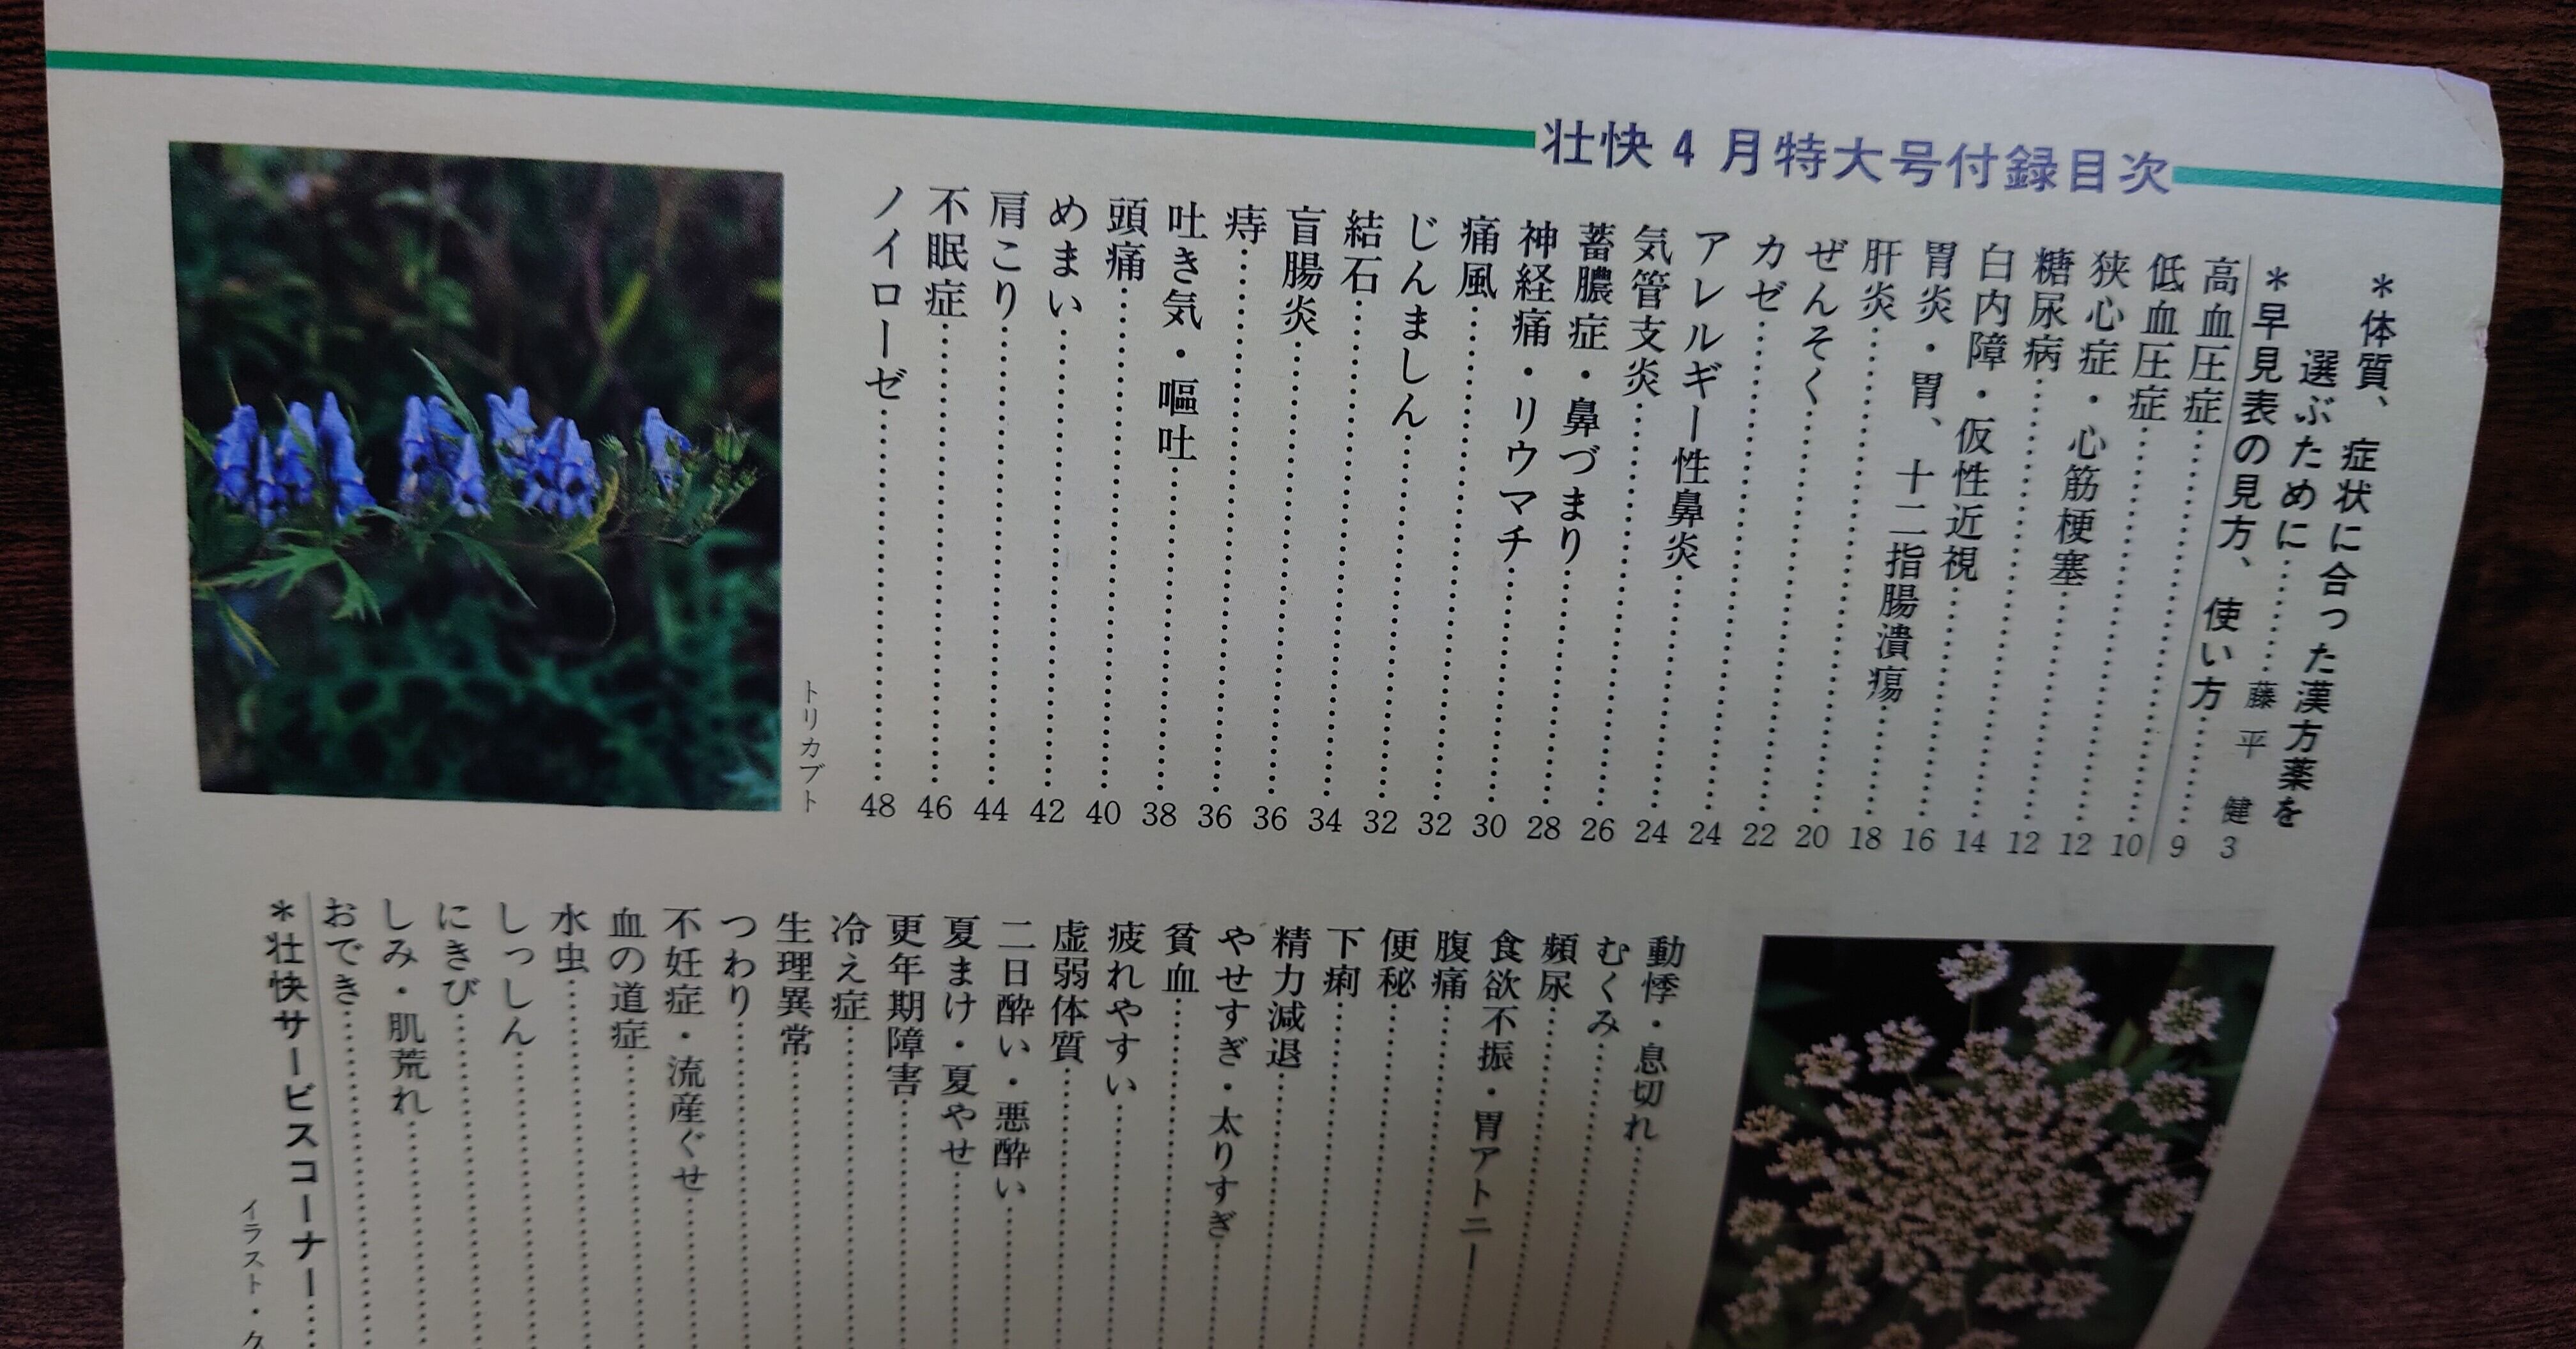 壮快4月特大号付録目次
＊体質、症状に合った漢方薬を
選ぶために……藤平 健 3
＊早見表の見方、使い方……9
高血圧症……10
低血圧症……12
狭心症・心筋梗塞……12
糖尿病……14
白内障・仮性近視……16
胃炎・胃、十二指腸潰瘍……18
肝炎……20
ぜんそく……22
カゼ……24
アレルギー性鼻炎……24
気管支炎……26
蓄膿症・鼻づまり……28
神経痛・リウマチ……30
痛風……32
じんましん……32
結石……34
盲腸炎……36
痔……36
吐き気・嘔吐……38
頭痛……40
めまい……42
肩こり……44
不眠症……46
ノイローゼ……48
トリカブト
動悸・息切れ……
むくみ……
頻尿……
食欲不振・胃アトニー……
腹痛……
便秘……
下痢……
精力減退……
やせすぎ・太りすぎ……
貧血……
疲れやすい……
虚弱体質……
二日酔い・悪酔い……
夏まけ・夏やせ……
更年期障害……
冷え症……
生理異常……
つわり……
不妊症・流産ぐせ……
血の道症……
水虫……
しっしん……
にきび……
しみ・肌荒れ……
おでき……
＊壮快サービスコーナー……
イラスト・久